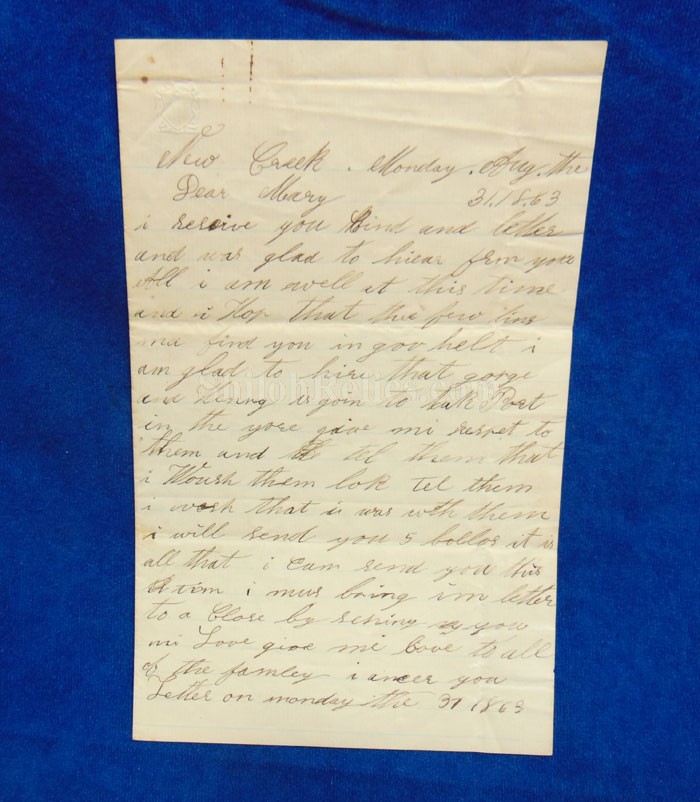 New Creek . Monday . Aug. the
Dear Mary 31.18.63
i reseive you kind and letter
and was glad to hiear frm you
All i am well at this time
and i Hop that this few lins
ma find you in goo helt i
am glad to hire that gorge
and Henry is goin to tak Part
in the yore give mi respet to
them and tel them that
i Woush them lok tel them
i wosh that i was with them
i will send you 5 dollos it is
all that i cam send you this
tim i mus bring im letter
to a Close by sening you
mi Love give mi Love to all
of the famley i ancer you
Letter on monday the 31 1863
ShilohRelics.com